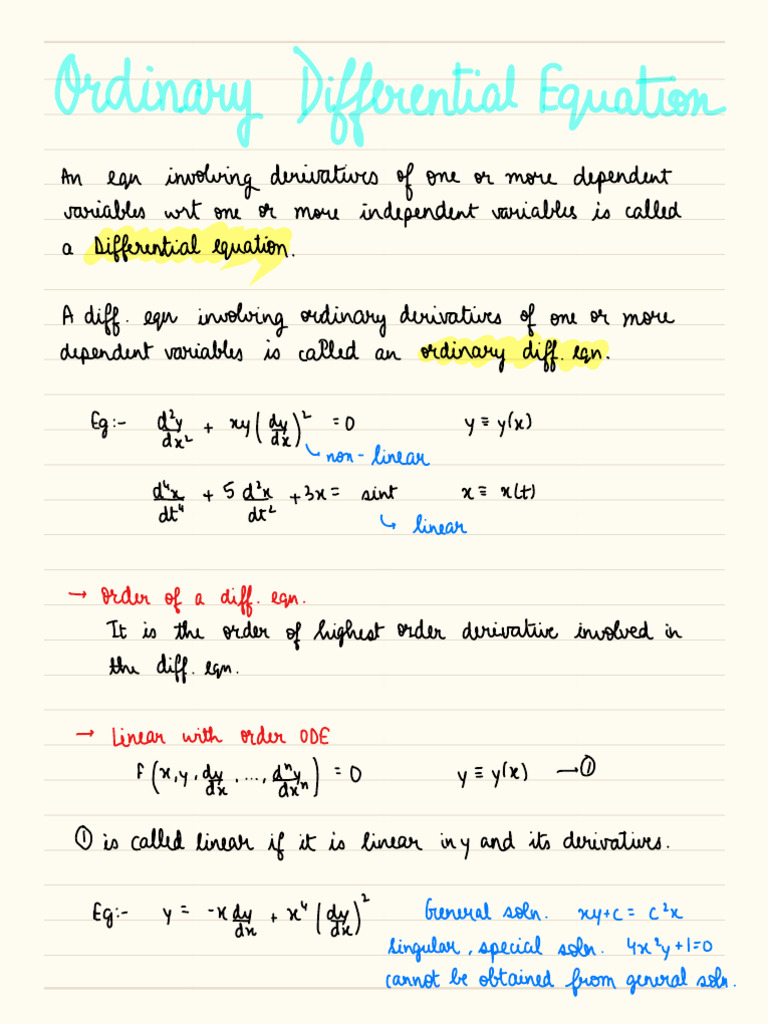 Ordinary Differential Equation
An eqn involving derivatives of one or more dependent
variables wrt one or more independent variables is called
a Differential equation.
A diff. eqn involving ordinary derivatives of one or more
dependent variables is called an ordinary diff. eqn.
Eg:- d²y/dx² + xy(dy/dx)² = 0 y ≡ y(x)
non-linear
d⁴x/dt⁴ + 5 d²x/dt² + 3x = sint x ≡ x(t)
linear
→ Order of a diff. eqn.
It is the order of highest order derivative involved in
the diff. eqn.
→ Linear with order ODE
F(x, y, dy/dx, ..., dⁿy/dxⁿ) = 0 y ≡ y(x) —①
① is called linear if it is linear in y and its derivatives.
Eg:- y = -x dy/dx + x⁴ (dy/dx)² General soln. xy+c = c²x
Singular, special soln. 4x²y+1=0
cannot be obtained from general soln.